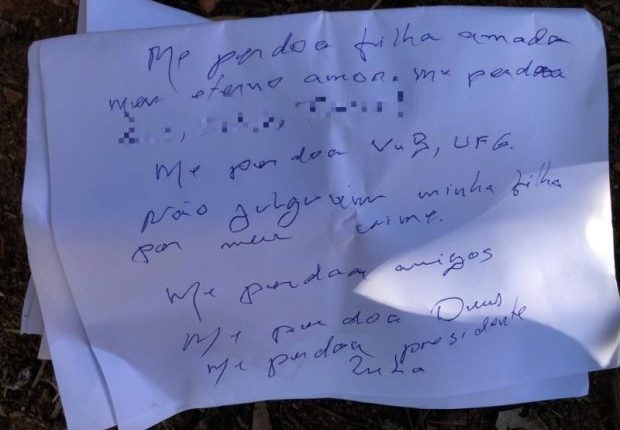 Me perdoa filha amada
meu eterno amor. me perdoa
Me perdoa VuB, UFG.
Não julguem minha filha
por meu crime.
Me perdoam amigos
Me perdoa Deus
me perdoa presidente
Lula